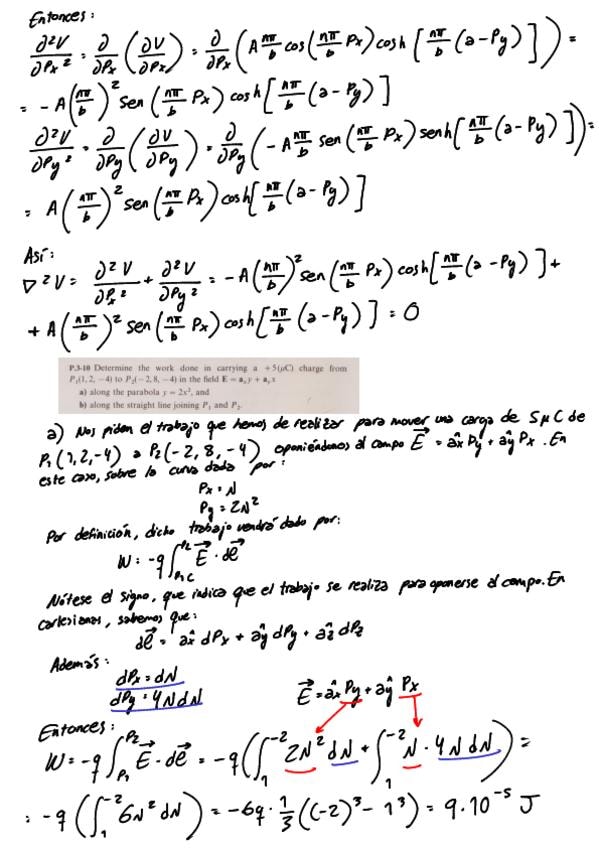 Entonces:
∂²V/∂Px² = ∂/∂Px (∂V/∂Px) = ∂/∂Px (A nπ/b cos(nπ/b Px) cosh[nπ/b (a-Py)]) =
= -A(nπ/b)² sen(nπ/b Px) cosh[nπ/b (a-Py)]
∂²V/∂Py² = ∂/∂Py (∂V/∂Py) = ∂/∂Py (-A nπ/b sen(nπ/b Px) senh[nπ/b (a-Py)]) =
= A(nπ/b)² sen(nπ/b Px) cosh[nπ/b (a-Py)]
Así:
∇²V = ∂²V/∂Px² + ∂²V/∂Py² = -A(nπ/b)² sen(nπ/b Px) cosh[nπ/b (a-Py)] +
+ A(nπ/b)² sen(nπ/b Px) cosh[nπ/b (a-Py)] = 0
P.3-10 Determine the work done in carrying a +5(μC) charge from
P₁(1, 2, −4) to P₂(−2, 8, −4) in the field E = aₓy + a_yx
a) along the parabola y = 2x², and
b) along the straight line joining P₁ and P₂.
a) Nos piden el trabajo que hemos de realizar para mover una carga de 5μC de
P₁(1,2,-4) a P₂(-2,8,-4) oponiéndonos al campo E⃗ = âx Py + ây Px. En
este caso, sobre la curva dada por:
Px = N
Py = 2N²
Por definición, dicho trabajo vendrá dado por:
W = -q ∫_{P₁ C}^{P₂} E⃗ · dℓ⃗
Nótese el signo, que indica que el trabajo se realiza para oponerse al campo. En
cartesianas, sabemos que:
dℓ⃗ = âx dPx + ây dPy + âz dPz
Además:
dPx = dN
dPy = 4NdN
E⃗ = âx Py + ây Px
Entonces:
W = -q ∫_{P₁}^{P₂} E⃗ · dℓ⃗ = -q (∫_1^{-2} 2N² dN + ∫_1^{-2} N · 4NdN) =
= -q (∫_1^{-2} 6N² dN) = -6q · 1/3 ((-2)³ - 1³) = 9·10⁻⁵ J